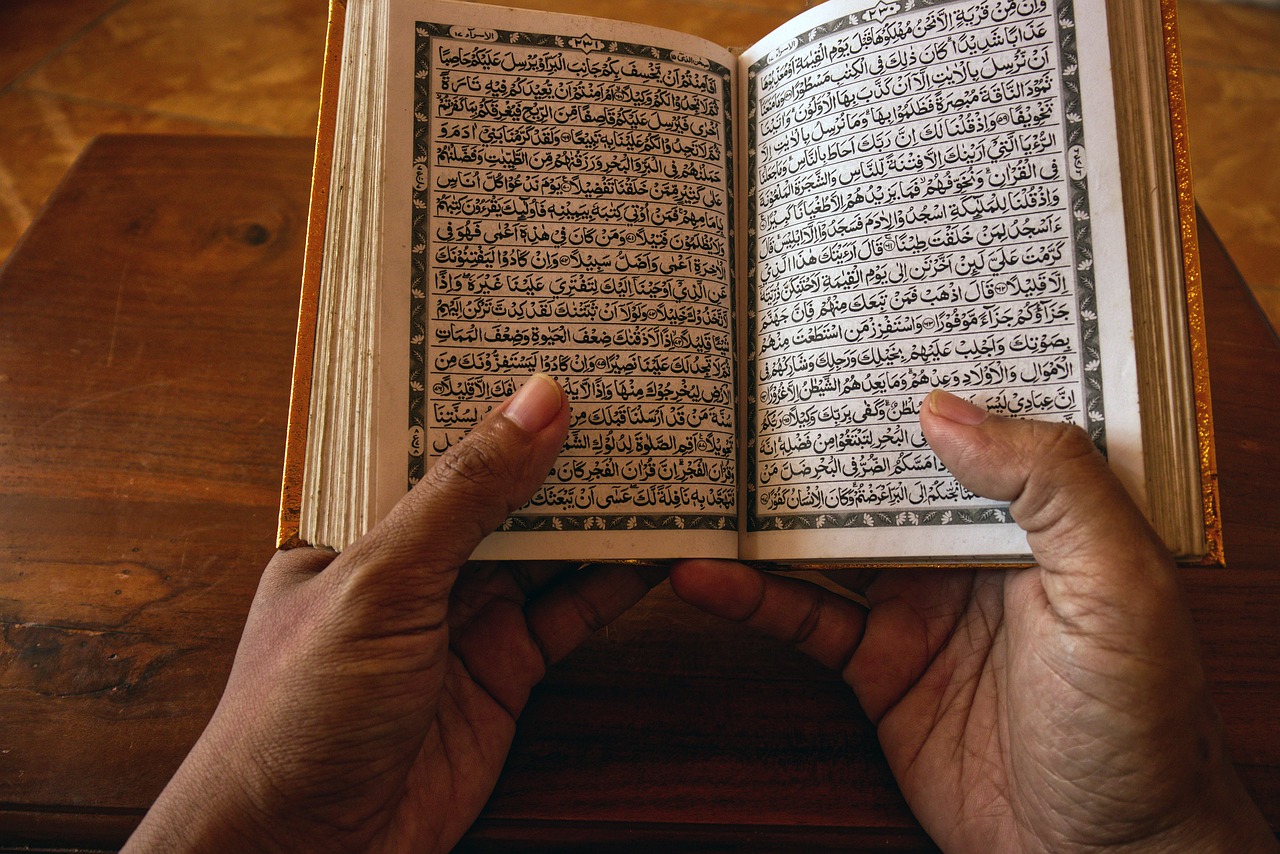 ٣٣٠
وَاِنْ مِّنْ قَرْيَةٍ اِلَّا نَحْنُ مُهْلِكُوْهَا قَبْلَ يَوْمِ الْقِيٰمَةِ اَوْ مُعَذِّبُوْهَا
عَذَابًا شَدِيْدًا ؕ كَانَ ذٰلِكَ فِى الْكِتٰبِ مَسْطُوْرًا ﴿٥٨﴾ وَمَا مَنَعَنَاۤ
اَنْ نُّرْسِلَ بِالْاٰيٰتِ اِلَّاۤ اَنْ كَذَّبَ بِهَا الْاَوَّلُوْنَ ؕ وَاٰتَيْنَا
ثَمُوْدَ النَّاقَةَ مُبْصِرَةً فَظَلَمُوْا بِهَا ؕ وَمَا نُرْسِلُ بِالْاٰيٰتِ اِلَّا
تَخْوِيْفًا ﴿٥٩﴾ وَاِذْ قُلْنَا لَكَ اِنَّ رَبَّكَ اَحَاطَ بِالنَّاسِ ؕ وَمَا جَعَلْنَا
الرُّءْيَا الَّتِىْۤ اَرَيْنٰكَ اِلَّا فِتْنَةً لِّلنَّاسِ وَالشَّجَرَةَ الْمَلْعُوْنَةَ
فِى الْقُرْاٰنِ ؕ وَنُخَوِّفُهُمْ ۙ فَمَا يَزِيْدُهُمْ اِلَّا طُغْيَانًا كَبِيْرًا ﴿٦٠﴾
وَاِذْ قُلْنَا لِلْمَلٰٓئِكَةِ اسْجُدُوْا لِاٰدَمَ فَسَجَدُوْۤا اِلَّاۤ اِبْلِيْسَ ؕ قَالَ
ءَاَسْجُدُ لِمَنْ خَلَقْتَ طِيْنًا ﴿٦١﴾ قَالَ اَرَءَيْتَكَ هٰذَا الَّذِىْ
كَرَّمْتَ عَلَىَّ لَئِنْ اَخَّرْتَنِ اِلٰى يَوْمِ الْقِيٰمَةِ لَاَحْتَنِكَنَّ ذُرِّيَّتَهٗۤ
اِلَّا قَلِيْلًا ﴿٦٢﴾ قَالَ اذْهَبْ فَمَنْ تَبِعَكَ مِنْهُمْ فَاِنَّ جَهَنَّمَ
جَزَآؤُكُمْ جَزَآءً مَّوْفُوْرًا ﴿٦٣﴾ وَاسْتَفْزِزْ مَنِ اسْتَطَعْتَ مِنْهُمْ
بِصَوْتِكَ وَاَجْلِبْ عَلَيْهِمْ بِخَيْلِكَ وَرَجِلِكَ وَشَارِكْهُمْ فِى
الْاَمْوَالِ وَالْاَوْلَادِ وَعِدْهُمْ ؕ وَمَا يَعِدُهُمُ الشَّيْطٰنُ اِلَّا غُرُوْرًا ﴿٦٤﴾
اِنَّ عِبَادِىْ سُلْطٰنٌ ؕ وَكَفٰى بِرَبِّكَ وَكِيْلًا ﴿٦٥﴾ رَبُّكُمُ
فِى الْبَحْرِ لِتَبْتَغُوْا مِنْ فَضْلِهٖ ؕ اِنَّهٗ
مَسَّكُمُ الضُّرُّ فِى الْبَحْرِ ضَلَّ مَنْ
نَجّٰىكُمْ اِلَى الْبَرِّ اَعْرَضْتُمْ ؕ وَكَانَ الْاِنْسَانُ كَفُوْرًا ﴿٦٧﴾
سبحن الذى ١٥ ٣٣١ الاسرآء ١٧
اَفَاَمِنْتُمْ اَنْ يَّخْسِفَ بِكُمْ جَانِبَ الْبَرِّ اَوْ يُرْسِلَ عَلَيْكُمْ حَاصِبًا
ثُمَّ لَا تَجِدُوْا لَكُمْ وَكِيْلًا ﴿٦٨﴾ اَمْ اَمِنْتُمْ اَنْ يُّعِيْدَكُمْ فِيْهِ تَارَةً
اُخْرٰى فَيُرْسِلَ عَلَيْكُمْ قَاصِفًا مِّنَ الرِّيْحِ فَيُغْرِقَكُمْ بِمَا كَفَرْتُمْ ۙ
ثُمَّ لَا تَجِدُوْا لَكُمْ عَلَيْنَا بِهٖ تَبِيْعًا ﴿٦٩﴾ وَلَقَدْ كَرَّمْنَا بَنِىْۤ اٰدَمَ وَ
حَمَلْنٰهُمْ فِى الْبَرِّ وَالْبَحْرِ وَرَزَقْنٰهُمْ مِّنَ الطَّيِّبٰتِ وَفَضَّلْنٰهُمْ
عَلٰى كَثِيْرٍ مِّمَّنْ خَلَقْنَا تَفْضِيْلًا ﴿٧٠﴾ يَوْمَ نَدْعُوْا كُلَّ اُنَاسٍ
بِاِمَامِهِمْ ۚ فَمَنْ اُوْتِىَ كِتٰبَهٗ بِيَمِيْنِهٖ فَاُولٰٓئِكَ يَقْرَءُوْنَ كِتٰبَهُمْ
وَلَا يُظْلَمُوْنَ فَتِيْلًا ﴿٧١﴾ وَمَنْ كَانَ فِىْ هٰذِهٖۤ اَعْمٰى فَهُوَ فِى
الْاٰخِرَةِ اَعْمٰى وَاَضَلُّ سَبِيْلًا ﴿٧٢﴾ وَاِنْ كَادُوْا لَيَفْتِنُوْنَكَ
عَنِ الَّذِىْۤ اَوْحَيْنَاۤ اِلَيْكَ لِتَفْتَرِىَ عَلَيْنَا غَيْرَهٗ ۖ وَاِذًا
لَّاتَّخَذُوْكَ خَلِيْلًا ﴿٧٣﴾ وَلَوْلَاۤ اَنْ ثَبَّتْنٰكَ لَقَدْ كِدْتَّ تَرْكَنُ اِلَيْهِمْ
شَيْئًا قَلِيْلًا ﴿٧٤﴾ اِذًا لَّاَذَقْنٰكَ ضِعْفَ الْحَيٰوةِ وَضِعْفَ الْمَمَاتِ
ثُمَّ لَا تَجِدُ لَكَ عَلَيْنَا نَصِيْرًا ﴿٧٥﴾ وَاِنْ كَادُوْا لَيَسْتَفِزُّوْنَكَ مِنَ
الْاَرْضِ لِيُخْرِجُوْكَ مِنْهَا وَاِذًا لَّا اِلَّا قَلِيْلًا ﴿٧٦﴾
سُنَّةَ مَنْ قَدْ اَرْسَلْنَا قَبْلَكَ مِنْ لِسُنَّتِنَا
تَحْوِيْلًا ﴿٧٧﴾ اَقِمِ الصَّلٰوةَ لِدُلُوْكِ الشَّمْسِ
وَقُرْاٰنَ الْفَجْرِ ؕ اِنَّ قُرْاٰنَ الْفَجْرِ كَانَ
فَتَهَجَّدْ بِهٖ نَافِلَةً لَّكَ ۖ عَسٰۤى اَنْ يَّبْعَثَكَ